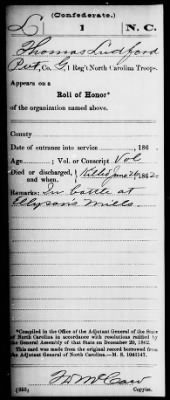 (Confederate.)
L 1 N. C.
Thomas Ludford
Pvt, Co. G, 1 Reg't North Carolina Troops.
Appears on a
Roll of Honor*
of the organization named above.
County
Date of entrance into service , 186 .
Age ; Vol. or Conscript Vol
Died or discharged, and when. } Killed June 26, 1862.
Remarks: In battle at
Ellyson's Mills
*Compiled in the Office of the Adjutant General of the State
of North Carolina in accordance with resolutions ratified by
the General Assembly of that State on December 20, 1862.
This card was made from the original record borrowed from
the Adjutant General of North Carolina.—M. S. 1043147.
Copyist.